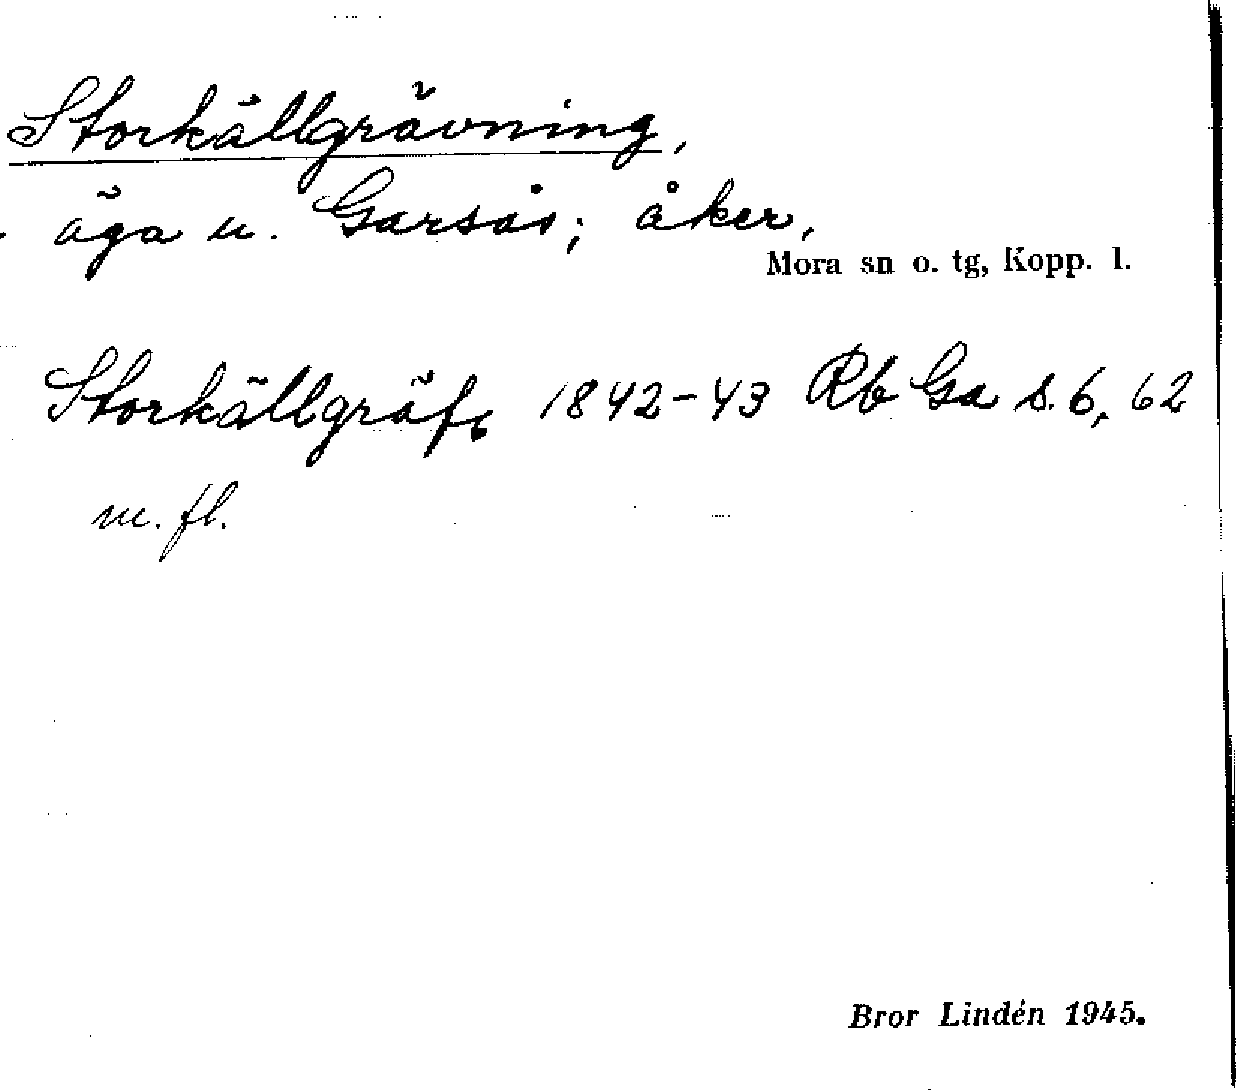 Storkällgrävning,
äga u. Garsås; åker,
Mora sn o. tg, Kopp. l.
Storkällgräfs 1842-43 Rb Ga s. 6, 62
m. fl.
Bror Lindén 1945.